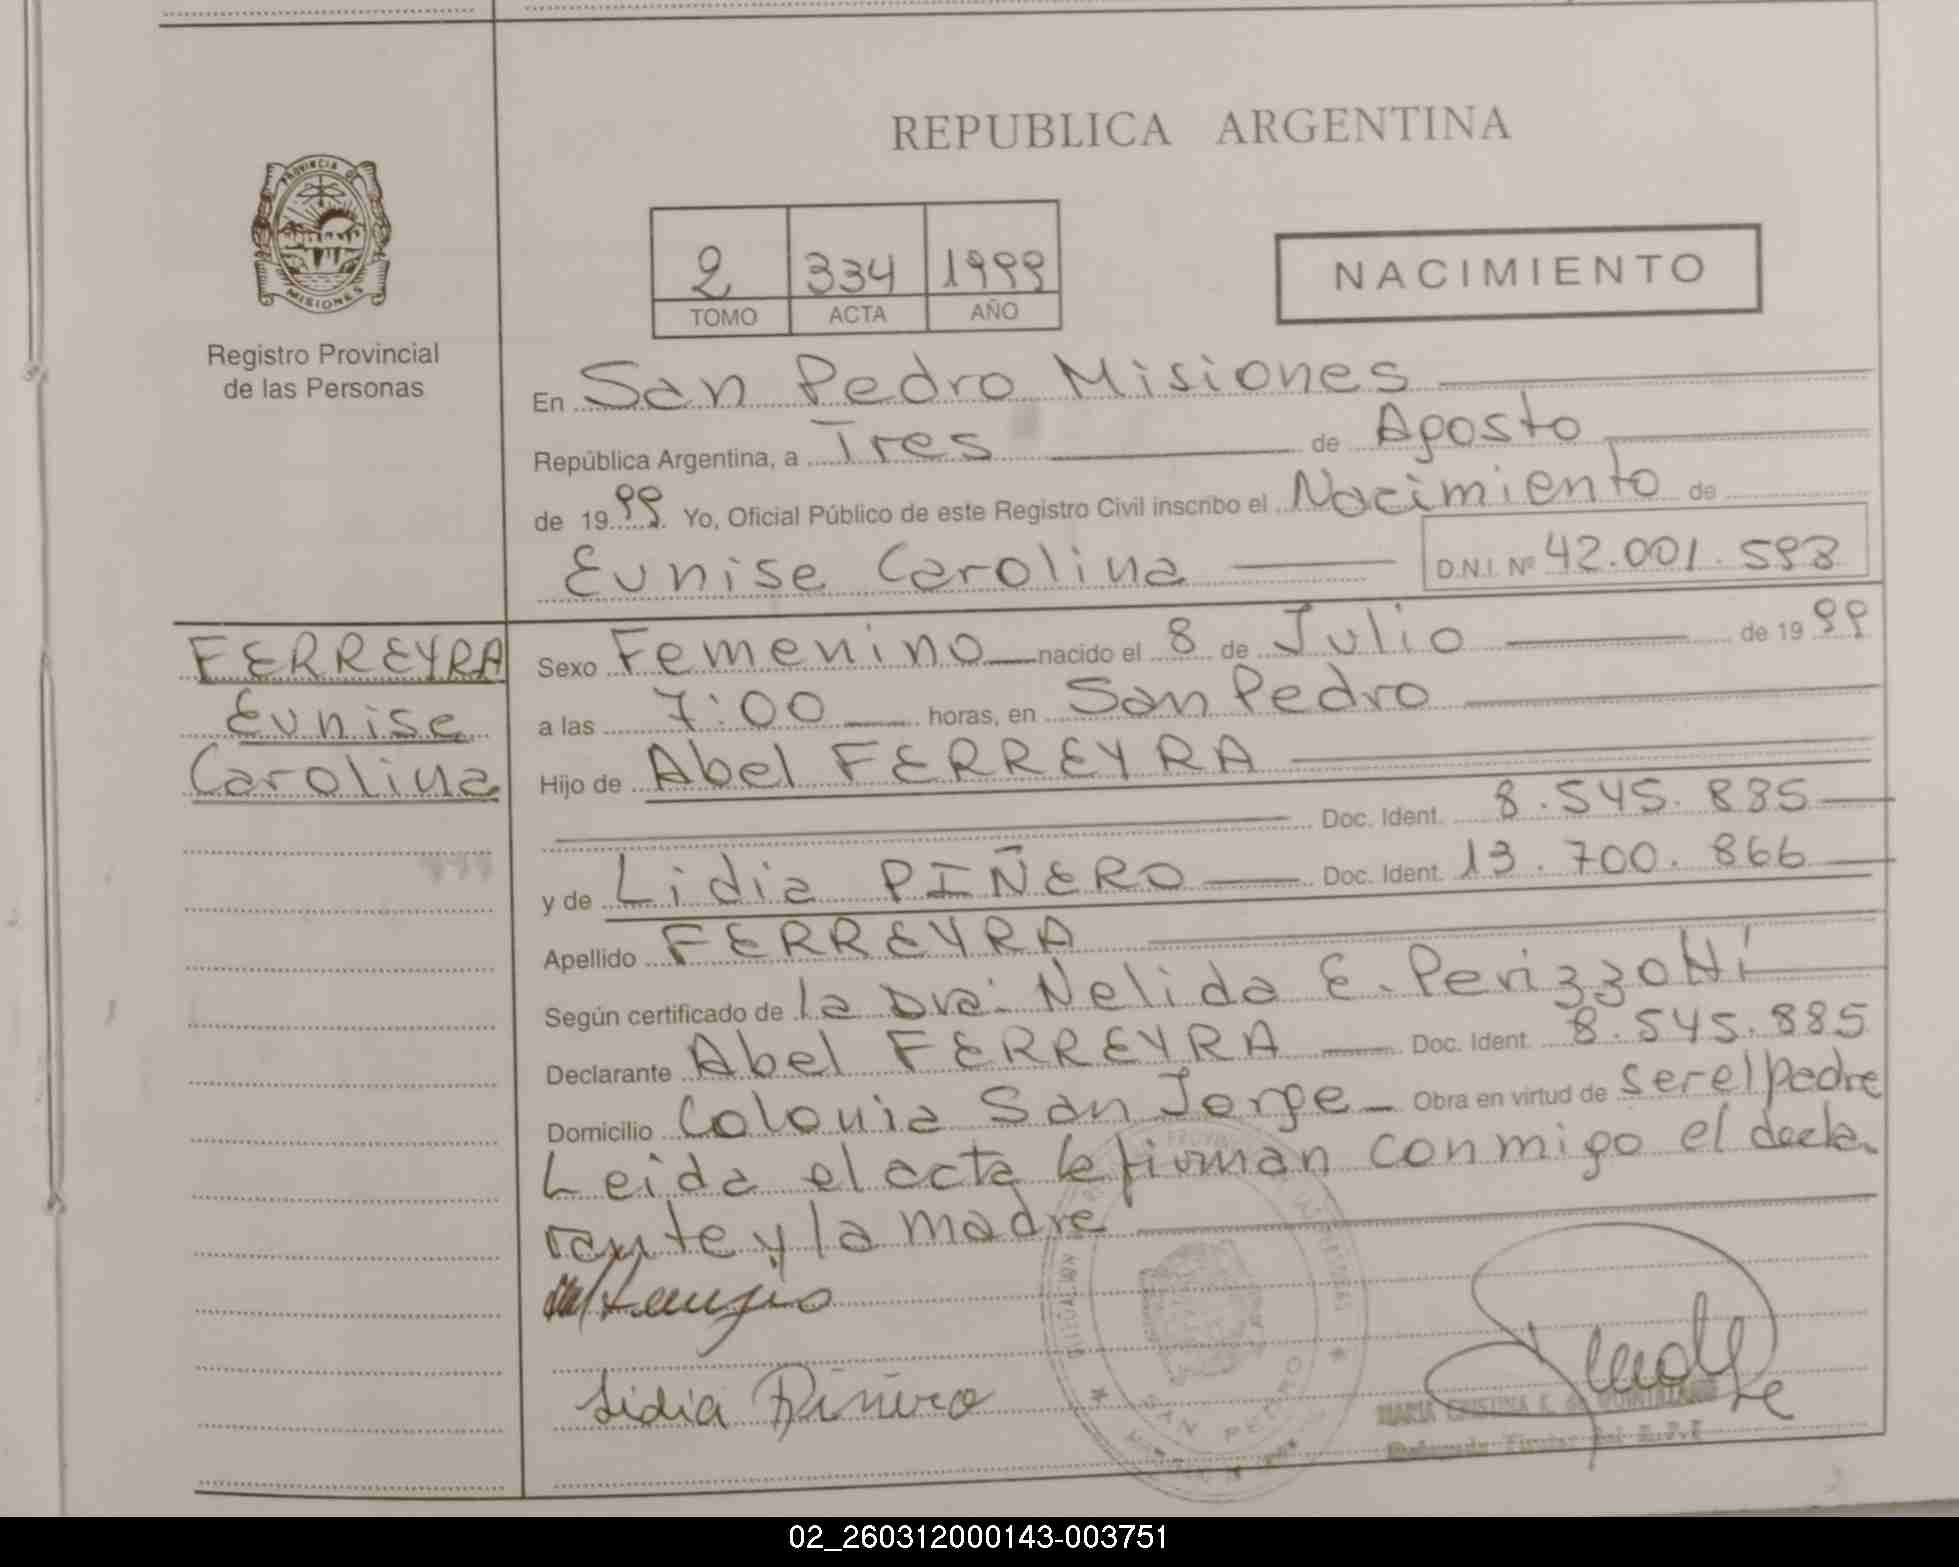 REPUBLICA ARGENTINA
PROVINCIA DE
MISIONES
Registro Provincial
de las Personas
2 334 1999
TOMO ACTA AÑO
NACIMIENTO
En San Pedro Misiones
República Argentina, a Tres de Agosto
de 1999. Yo, Oficial Público de este Registro Civil inscribo el Nacimiento de
Eunise Carolina D.N.I. Nº 42.001.593
FERREYRA
Eunise
Carolina
Sexo Femenino nacido el 8 de Julio de 1999
a las 7:00 horas, en San Pedro
Hijo de Abel FERREYRA
Doc. Ident. 8.545.885
y de Lidia PIÑERO Doc. Ident. 13.700.866
Apellido FERREYRA
Según certificado de la Dra. Nelida E. Perizzotti
Declarante Abel FERREYRA Doc. Ident. 8.545.885
Domicilio Colonia San Jorge Obra en virtud de ser el padre
Leida el acta la firman conmigo el decla-
rante y la madre
Lidia Piñero
SAN PEDRO
MARIA CRISTINA
02_260312000143-003751